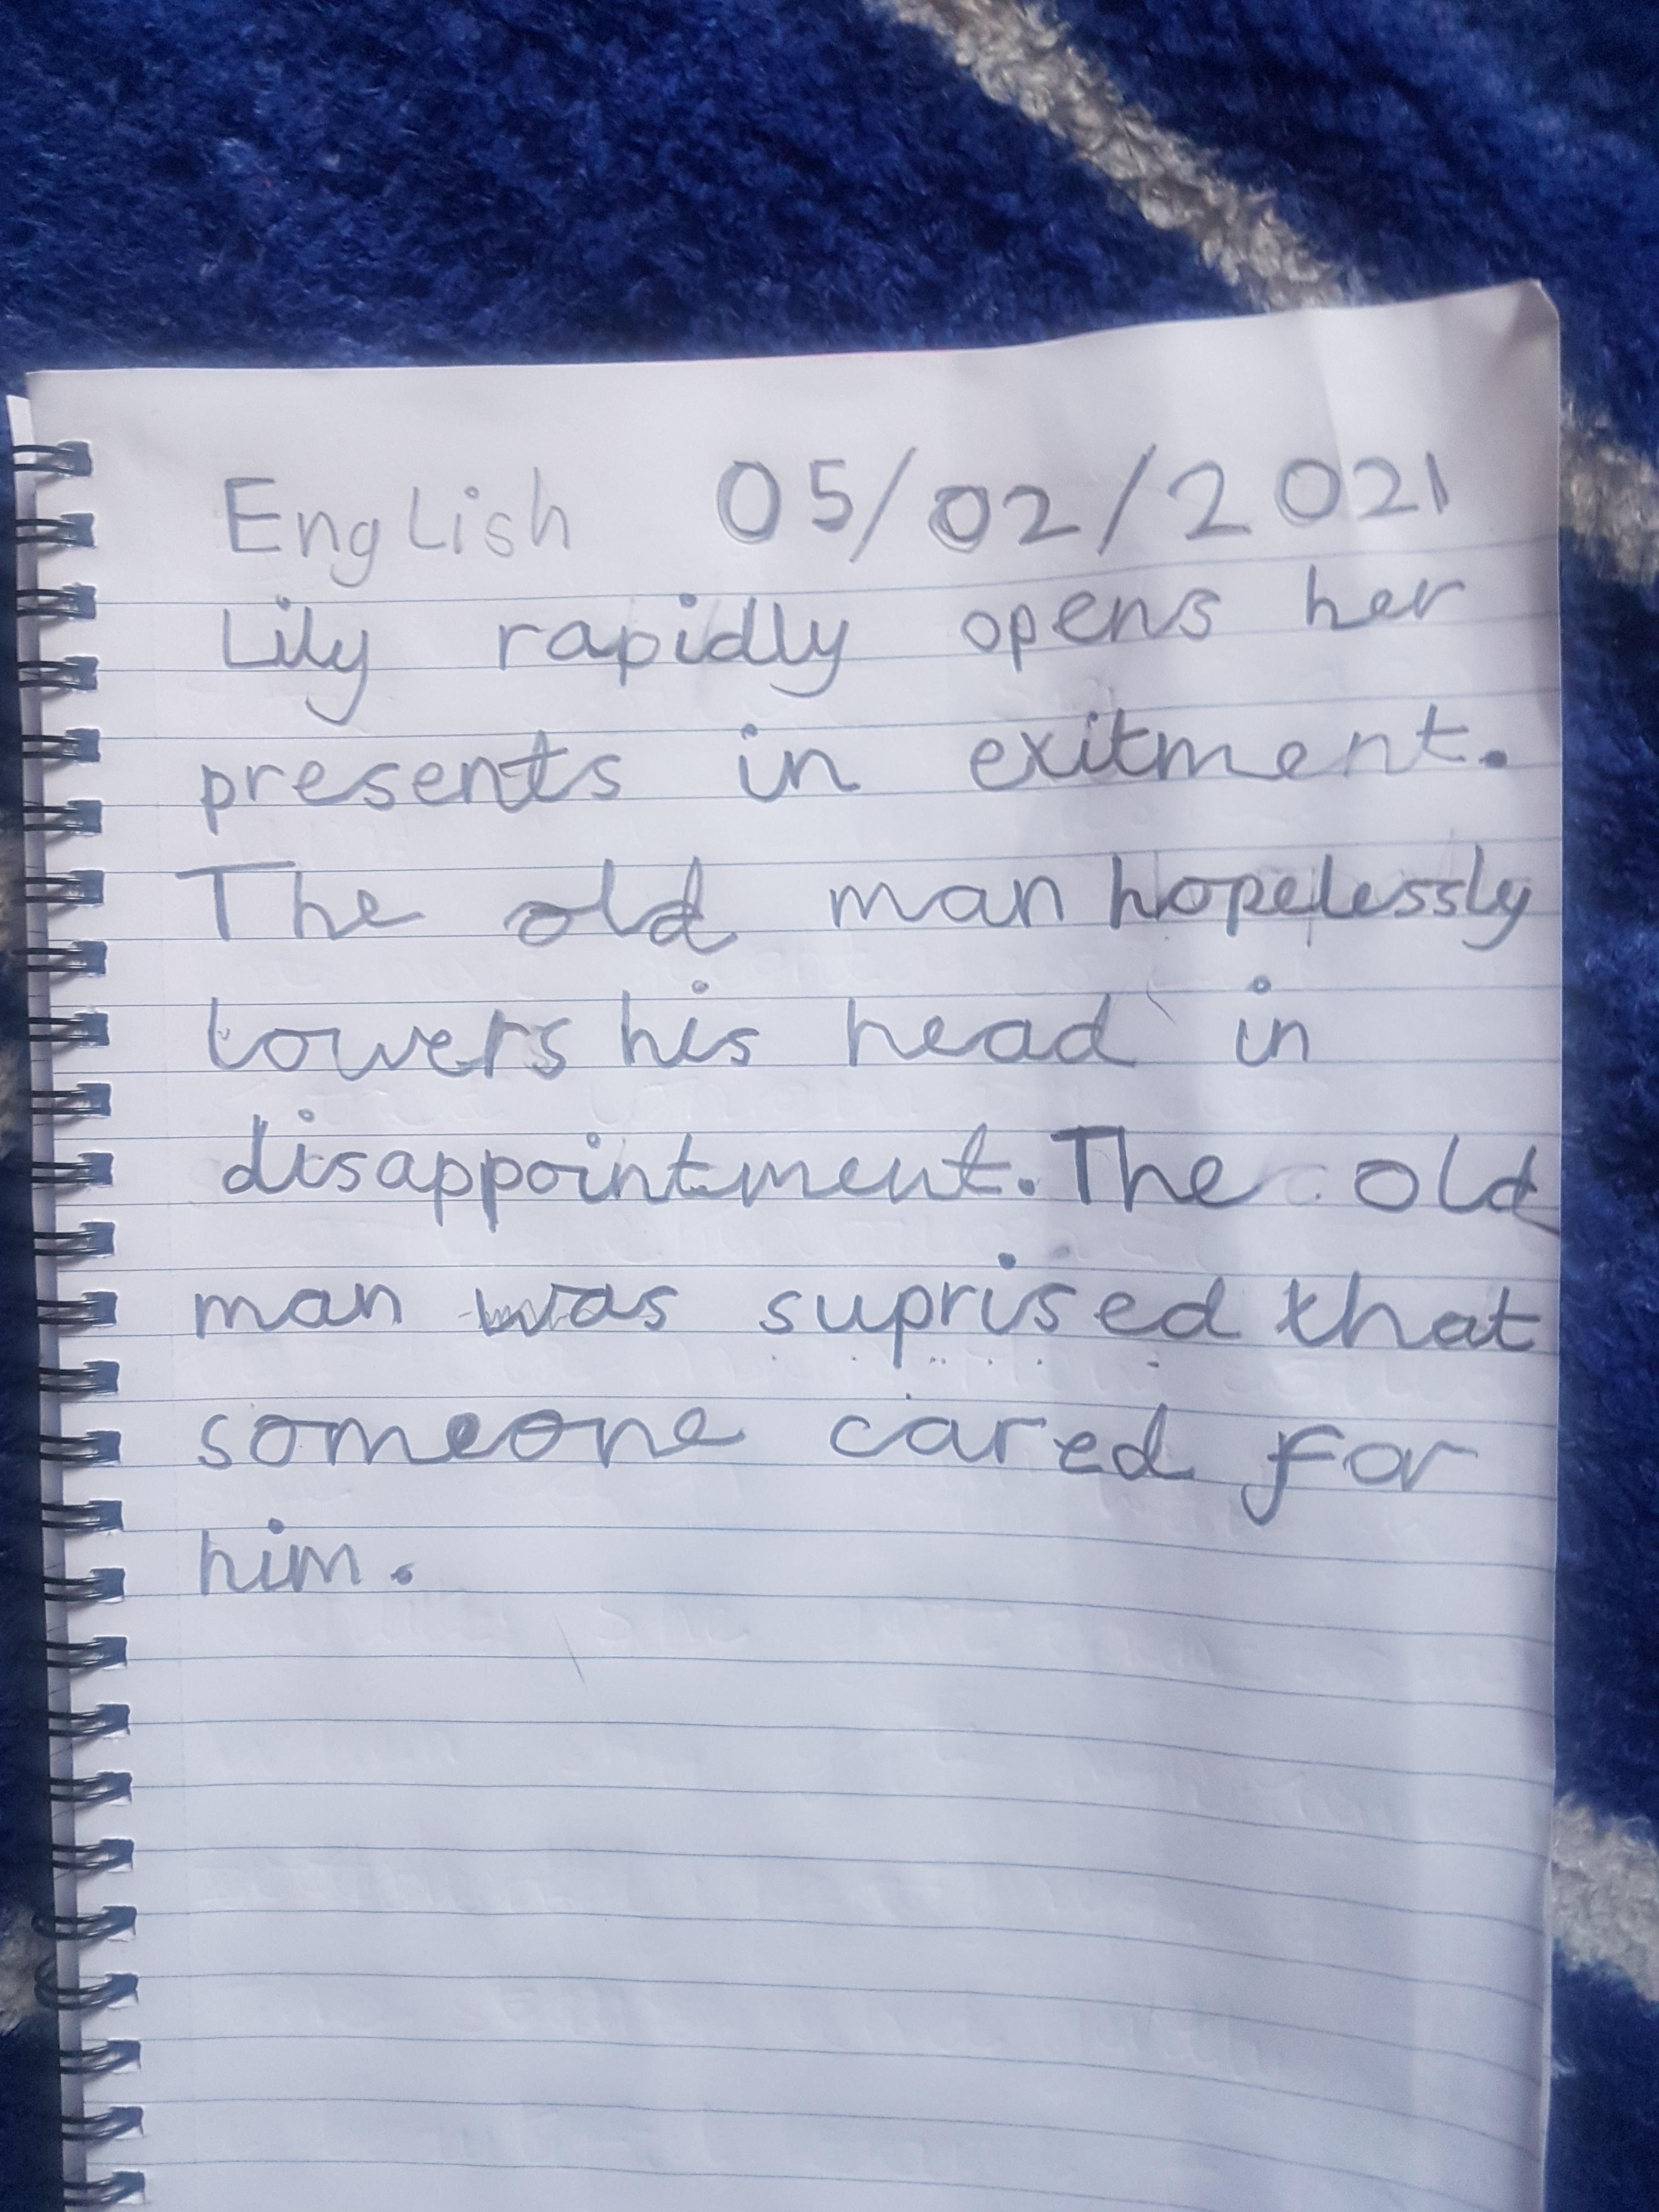 English 05/02/2021
Lily rapidly opens her
presents in exitment.
The old man hopelessly
lowers his head in
disappointment. The old
man was suprised that
someone cared for
him.